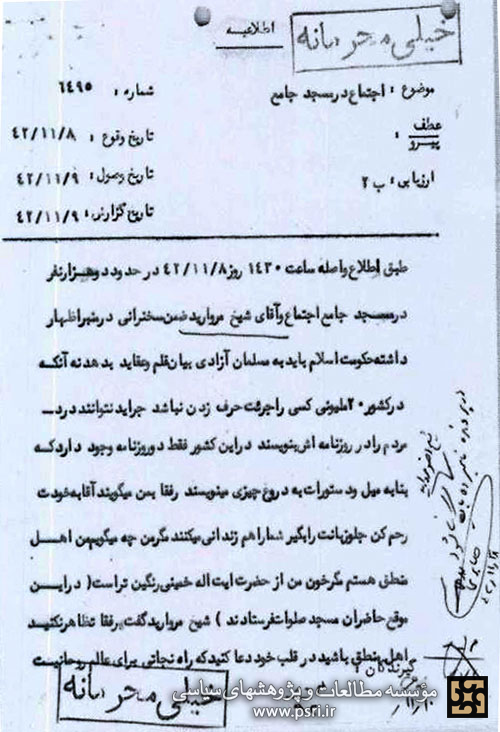 خیلی محرمانه
اطلاعیه
موضوع : اجتماع در مسجد جامع
شماره : ۶۴۹۵
عطف
پیرو :
تاریخ وقوع : ۴۲/۱۱/۸
ارزیابی : ب ۲
تاریخ وصول : ۴۲/۱۱/۹
تاریخ گزارش : ۴۲/۱۱/۹
طبق اطلاع واصله ساعت ۱۴۳۰ روز ۴۲/۱۱/۸ در حدود دوهزارنفر
در مسجد جامع اجتماع و آقای شیخ مروارید ضمن سخنرانی در منبر اظهار
داشته حکومت اسلام باید به مسلمان آزادی بیان قلم و عقاید بدهد نه آنکه
در کشور ۲۰ ملیونی کسی را جرئت حرف زدن نباشد جراید نتوانند درد
مردم را در روزنامه اش بنویسند در این کشور فقط دو روزنامه وجود دارد که
بنا به میل و دستورات به دروغ چیزی مینویسند رفقا بمن میگویند آقا به خودت
رحم کن جلو زبانت را بگیر شما را هم زندانی میکنند مگر من چه میگویم من اهل
منطق هستم مگر خون من از حضرت ایت اله خمینی رنگین تر است ( در این
موقع حاضران مسجد صلوات فرستادند ) شیخ مروارید گفت رفقا تظاهر نکنید
اهل منطق باشید در قلب خود دعا کنید که راه نجاتی برای عالم روحانیت
گیرندگان
خیلی محرمانه
مؤسسه مطالعات و پژوهشهای سیاسی
www.psri.ir